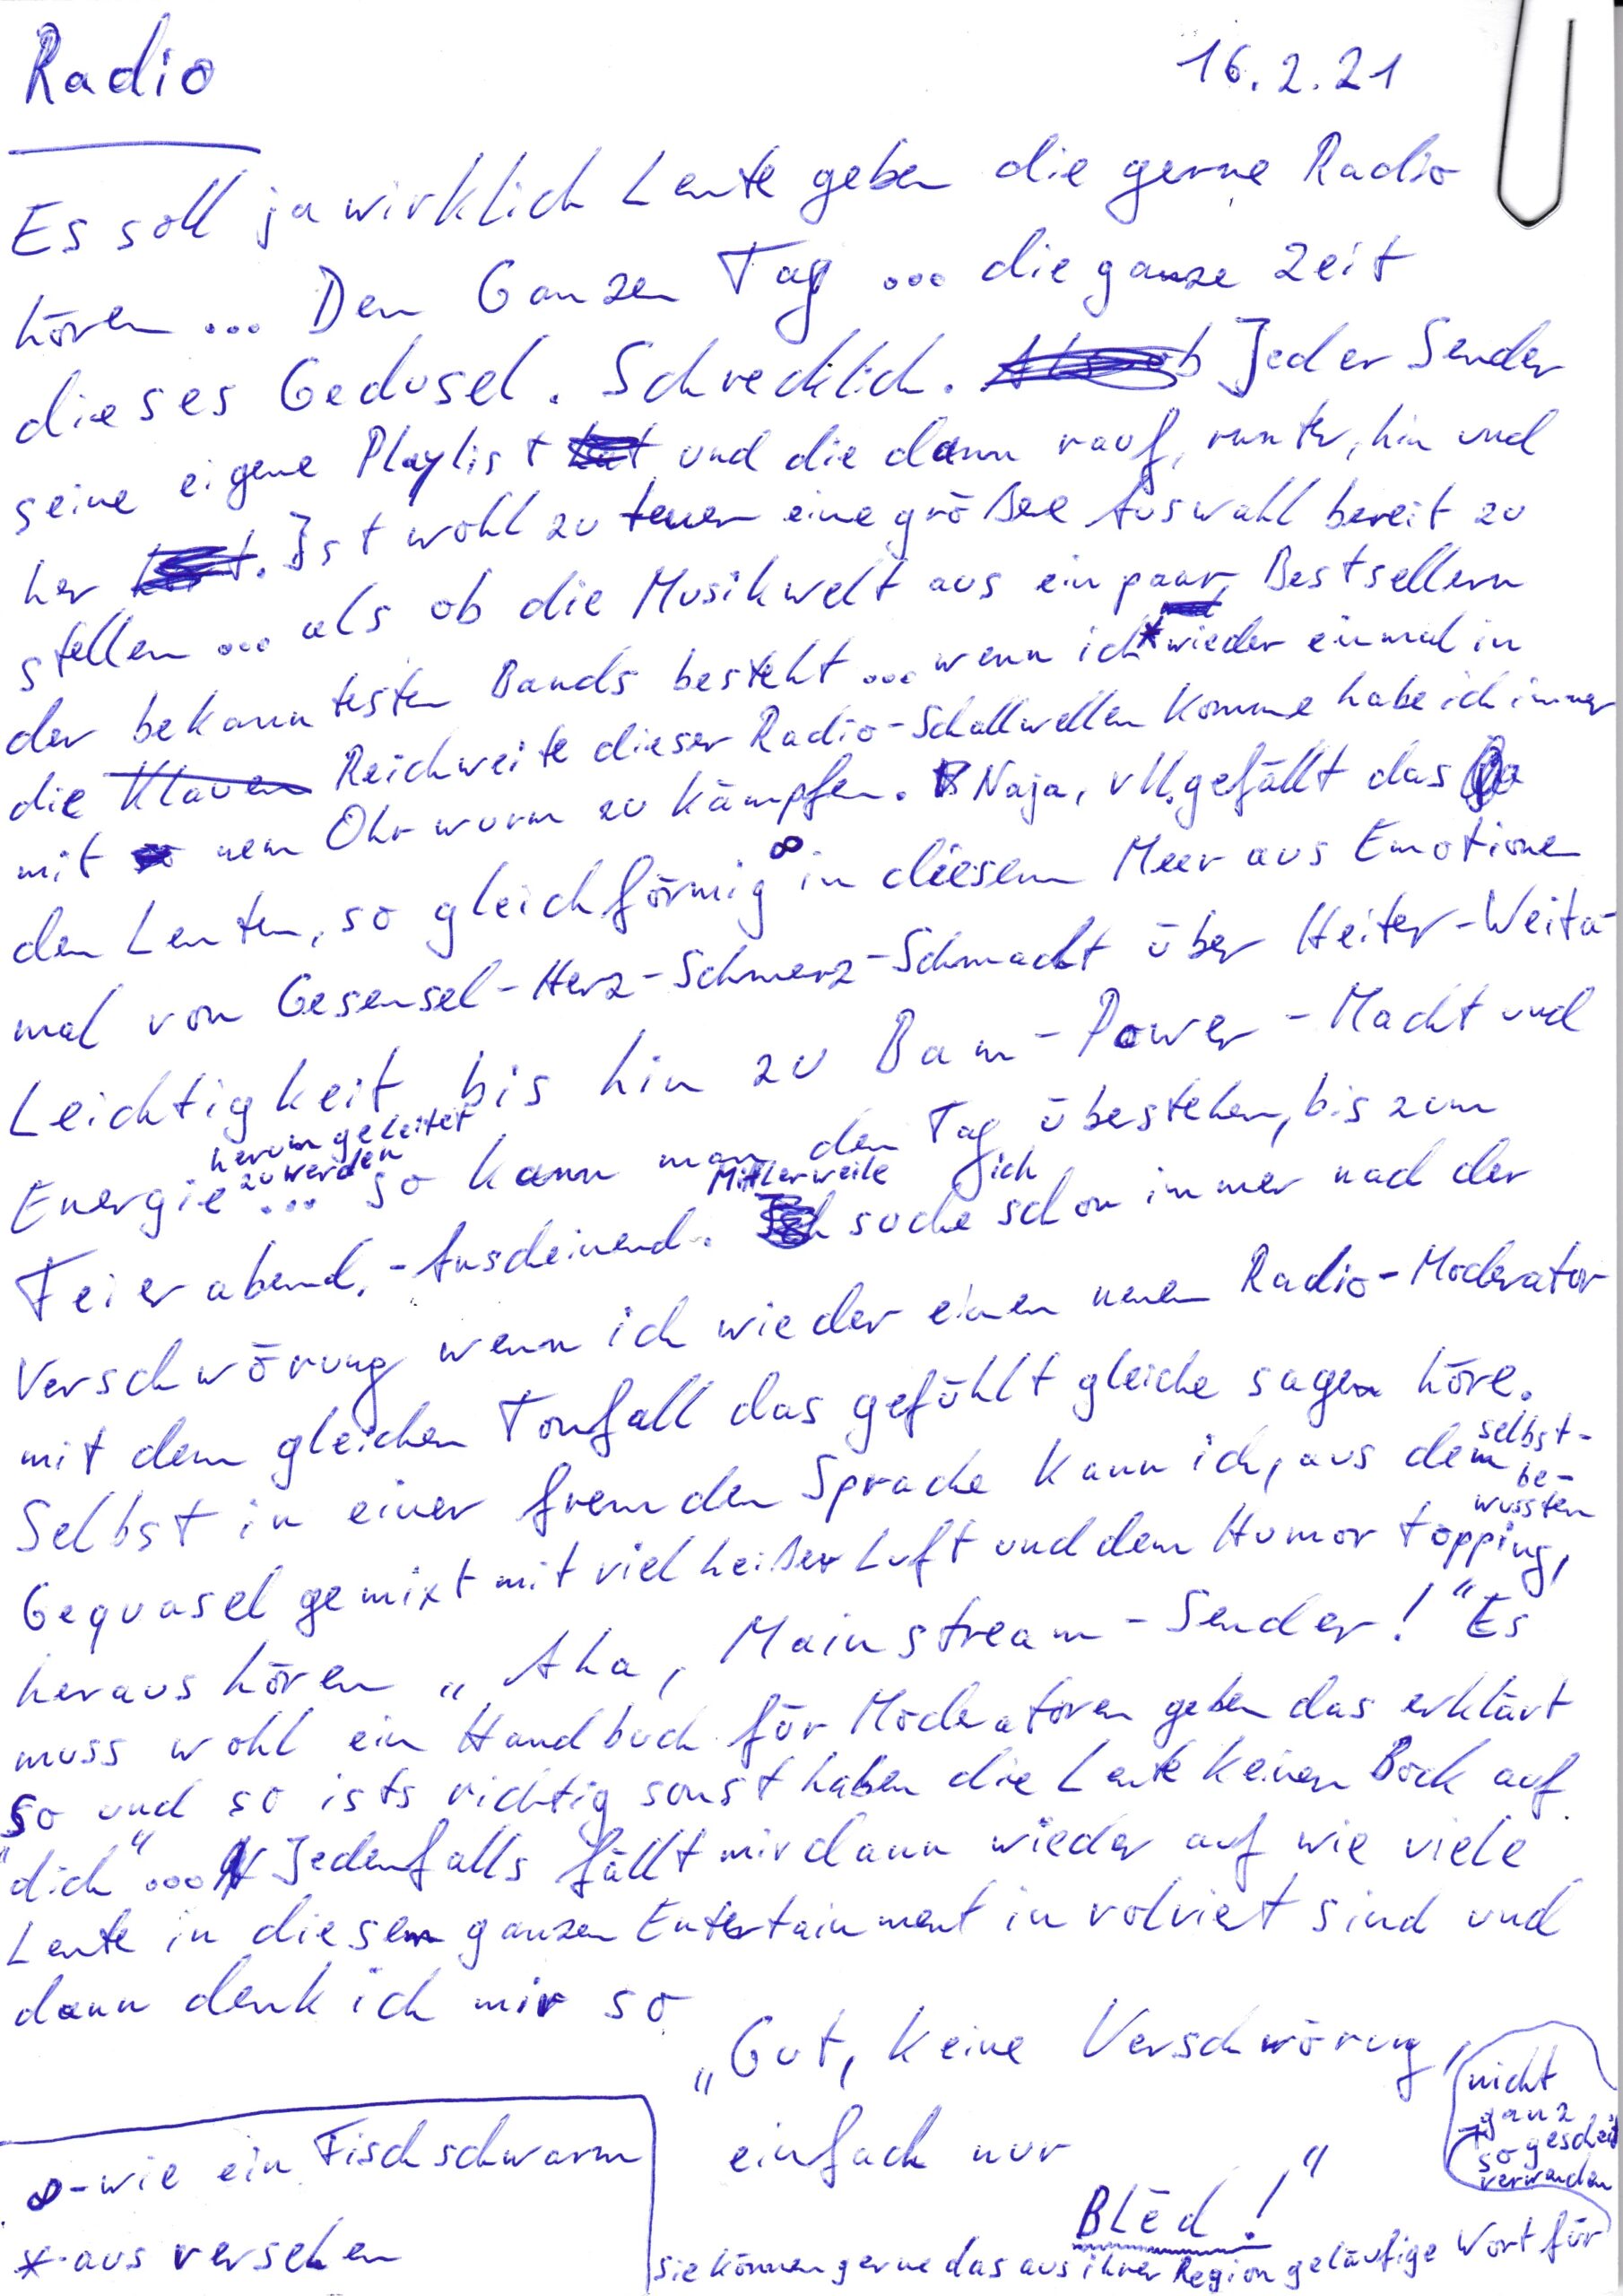 Radio
16.2.21
Es soll ja wirklich Leute geben die gerne Radio
hören ... Den Ganzen Tag ... die ganze Zeit
dieses Gedusel. Schrecklich. Jeder Sender
seine eigene Playlist und die dann rauf, runter, hin und
her. Ist wohl zu teuer eine größee Auswahl bereit zu
stellen ... als ob die Musikwelt aus ein paar Bestsellern
der bekanntesten Bands besteht ... wenn ich * wieder einmal in
die Reichweite dieser Radio-Schallwellen komme habe ich immer
mit nem Ohrwurm zu kämpfen. Naja, vll. gefällt das
den Leuten, so gleichförmig ∞ in diesem Meer aus Emotionen
mal von Gesensel-Herz-Schmerz-Schmacht über Heiter-Weita-
Leichtigkeit bis hin zu Bam-Power-Macht und
herum geleitet
zu werden
Energie ... so kann man den Tag übestehen, bis zum
Mittlerweile ich
Feierabend, - Anscheinend. suche schon immer nach der
Verschwörung wenn ich wieder einen neuen Radio-Moderator
mit dem gleichen Tonfall das gefühlt gleiche sagen höre.
Selbst in einer fremden Sprache kann ich, aus dem selbst-
be-
wussten
Gequasel gemixt mit viel heißer Luft und dem Humor topping,
heraus hören „Aha, Mainstream-Sender!" Es
muss wohl ein Handbuch für Moderatoren geben das erklärt
so und so ists richtig sonst haben die Leute keinen Bock auf
"dich" ... Jedenfalls fällt mir dann wieder auf wie viele
Leute in diesem ganzen Entertainment involviert sind und
dann denk ich mir so
„Gut, keine Verschwörung,
einfach nur
BLëd!"
∞-wie ein Fischschwarm
*-aus versehen
sie können gerne das aus ihrer Region geläufige Wort für
nicht
ganz
so gescheit
verwenden